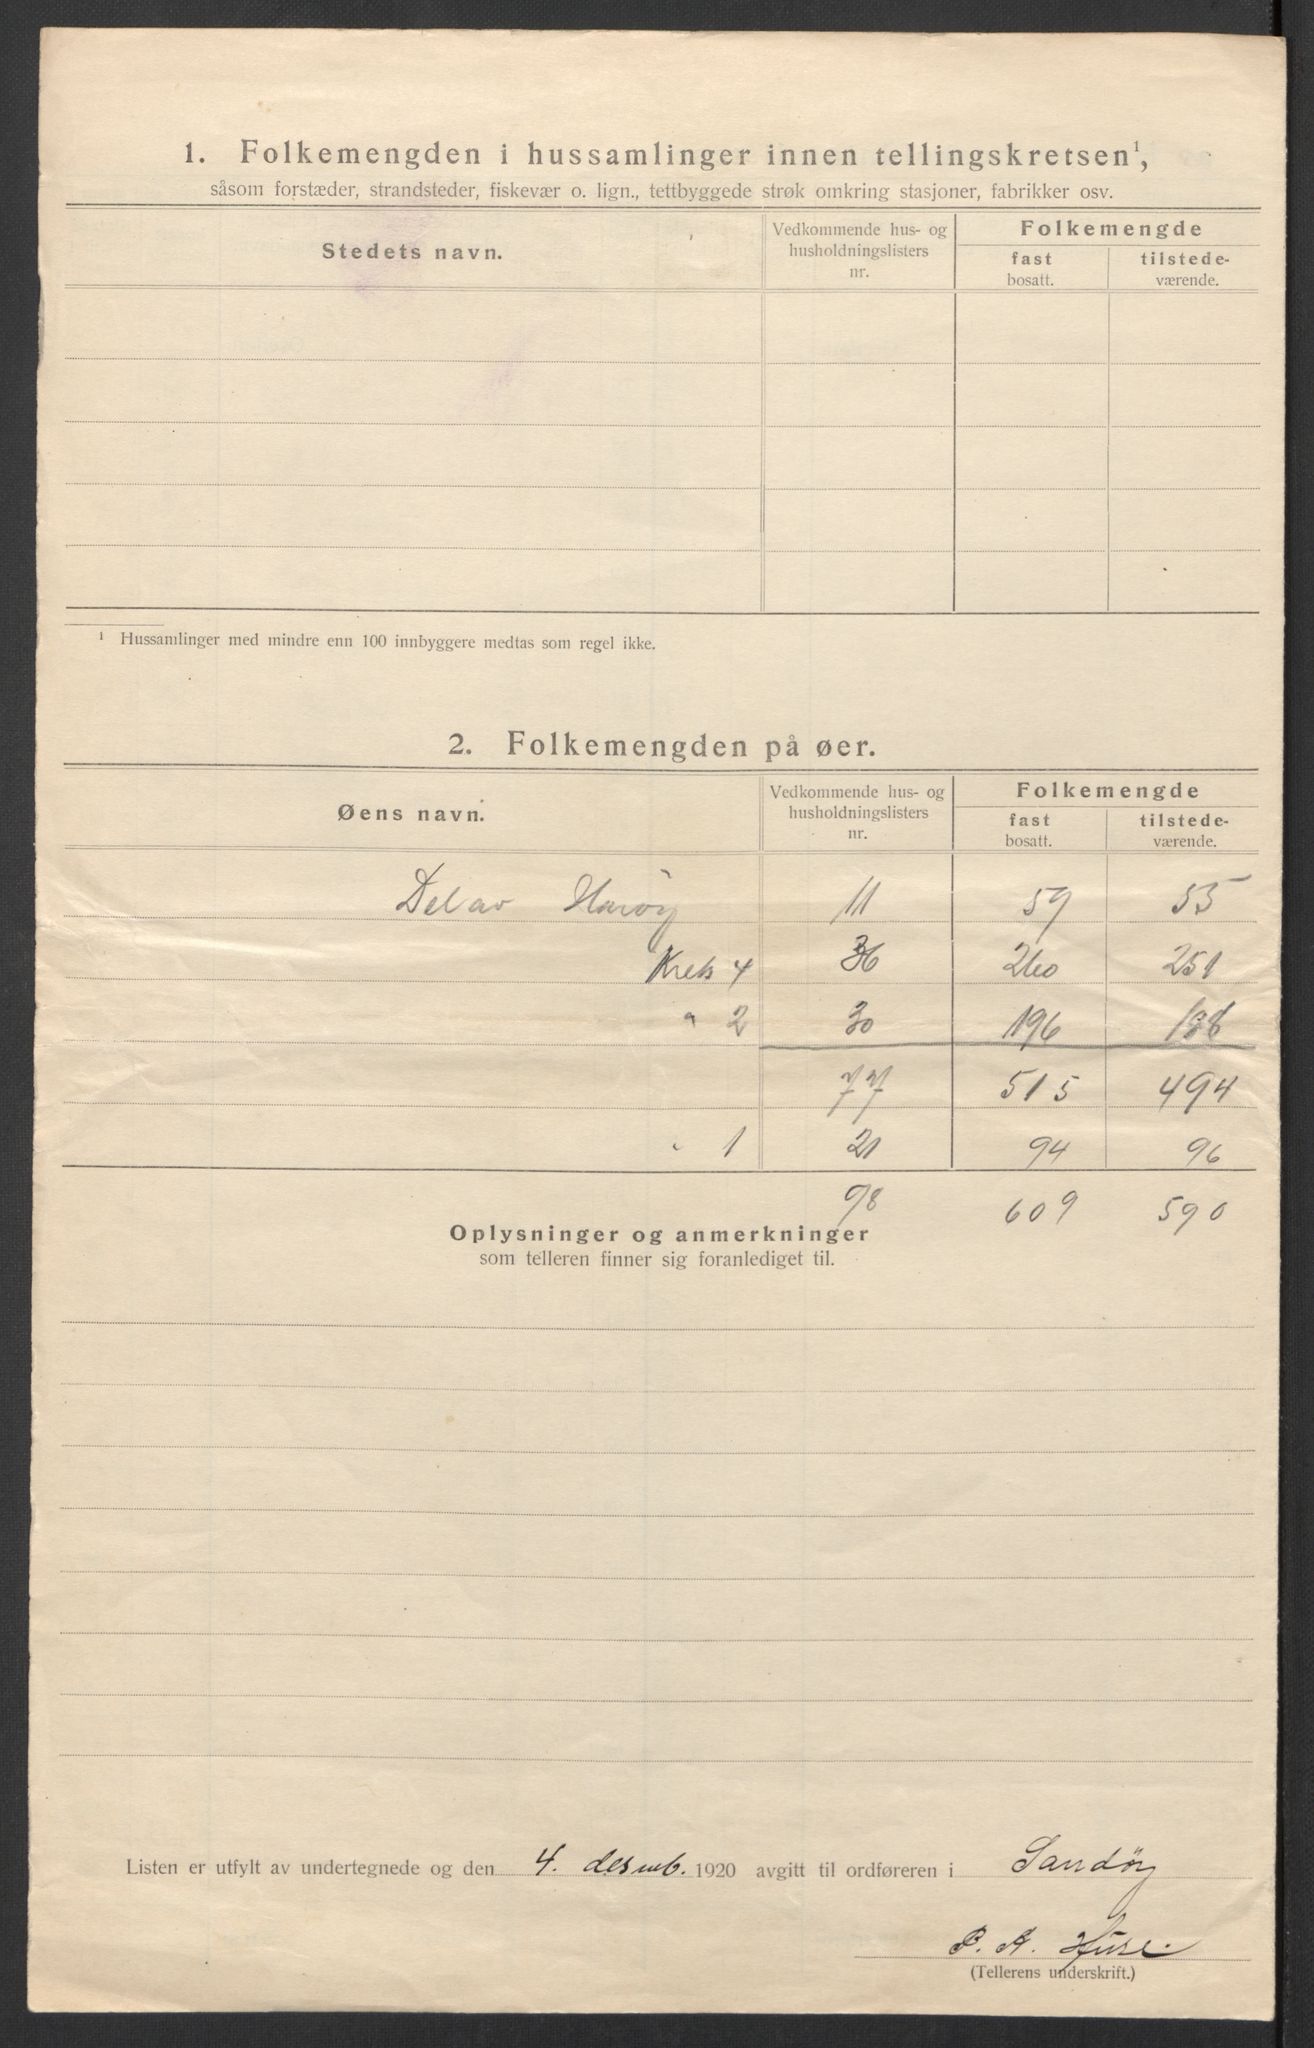 1. Folkemengden i hussamlinger innen tellingskretsen¹,
såsom forstæder, strandsteder, fiskevær o. lign., tettbyggede strøk omkring stasjoner, fabrikker osv.
Stedets navn.
Vedkommende hus- og
husholdningslisters
nr.
Folkemengde
fast
bosatt.
tilstede-
værende.
¹ Hussamlinger med mindre enn 100 innbyggere medtas som regel ikke.
2. Folkemengden på øer.
Øens navn.
Vedkommende hus- og
husholdningslisters
nr.
Folkemengde
fast
bosatt.
tilstede-
værende.
Del av Harøy 11 59 55
Krets 4 36 260 251
" 2 30 196 188
77 515 494
" 1 21 94 96
98 609 590
Oplysninger og anmerkninger
som telleren finner sig foranlediget til.
Listen er utfylt av undertegnede og den 4. desemb. 1920 avgitt til ordføreren i Sandøy
P. A. Huse.
(Tellerens underskrift.)